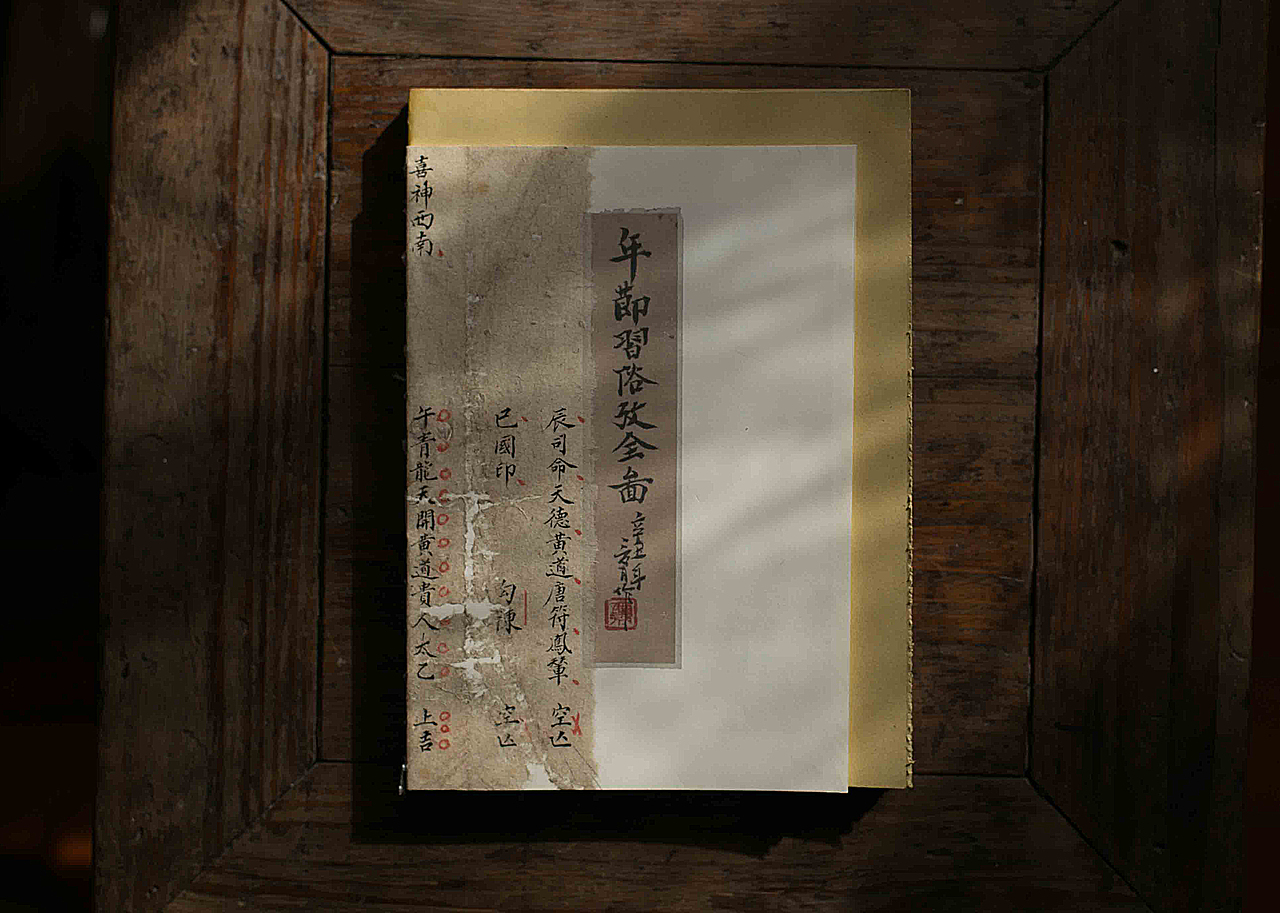 年節習俗攷全畵
辰司命天德黃道唐符鳳輦 空亾
巳國印 勾陳 空亾
午青龍天開黃道貴人太乙 上吉
喜神西南